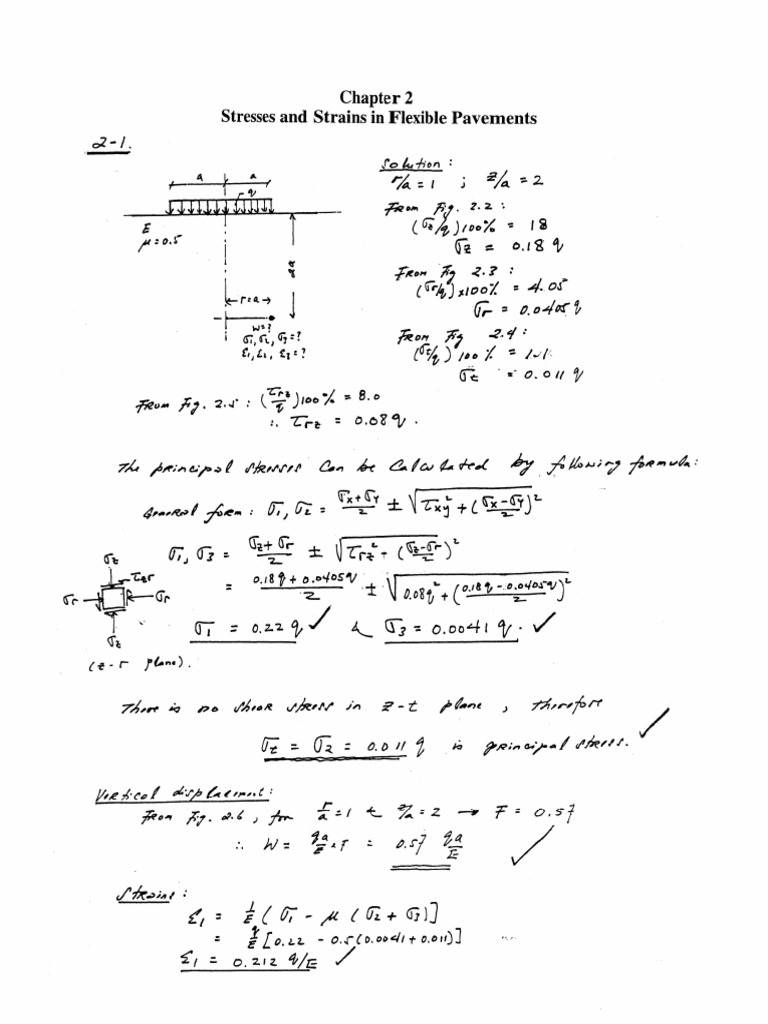 Chapter 2
Stresses and Strains in Flexible Pavements
2-1.
a a
q
E
μ=0.5
2a
r=a
W=?
σ1, σ2, σ3=?
ε1, ε2, ε3=?
Solution:
r/a = 1 ; z/a = 2
From Fig. 2.2:
(σz/q)100% = 18
σz = 0.18 q
From Fig 2.3:
(σr/q)×100% = 4.05
σr = 0.0405 q
From Fig 2.4:
(σt/q)100% = 1.1
σt = 0.011 q
From Fig. 2.5: (τrz/q)100% = 8.0
∴ τrz = 0.08 q.
The principal stresses can be calculated by following formula:
General form: σ1, σ2 = (σx+σy)/2 ± √(τxy² + ((σx-σy)/2)²)
σ1, σ3 = (σz+σr)/2 ± √(τrz² + ((σz-σr)/2)²)
= (0.18q + 0.0405q)/2 ± √(0.08q² + ((0.18q - 0.0405q)/2)²)
σz
τzr
σr σr
σz
(z-r plane).
σ1 = 0.22 q ✓ & σ3 = 0.0041 q. ✓
There is no shear stress in z-t plane, therefore
σt = σ2 = 0.011 q is principal stress. ✓
Vertical displacement:
From Fig. 2.6, for r/a = 1 & z/a = 2 → F = 0.57
∴ W = qa/E × F = 0.57 qa/E ✓
Strains:
ε1 = 1/E (σ1 - μ (σ2 + σ3)]
= q/E [0.22 - 0.5(0.0041 + 0.011)]
ε1 = 0.212 q/E ✓